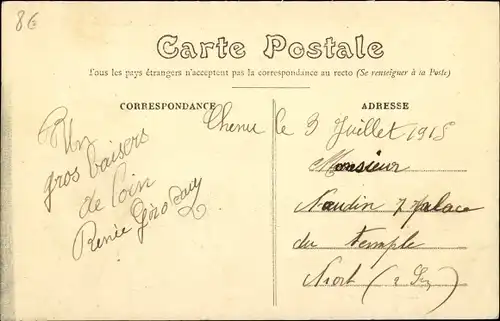 8€
Carte Postale
Tous les pays étrangers n'acceptent pas la correspondance au recto (Se renseigner à la Poste)
CORRESPONDANCE
ADRESSE
le 3 Juillet 1915
Un
gros baisers
de loin
Renée
Monsieur
Naudin 7 Palace
du Temple
Niort (2 Sev)